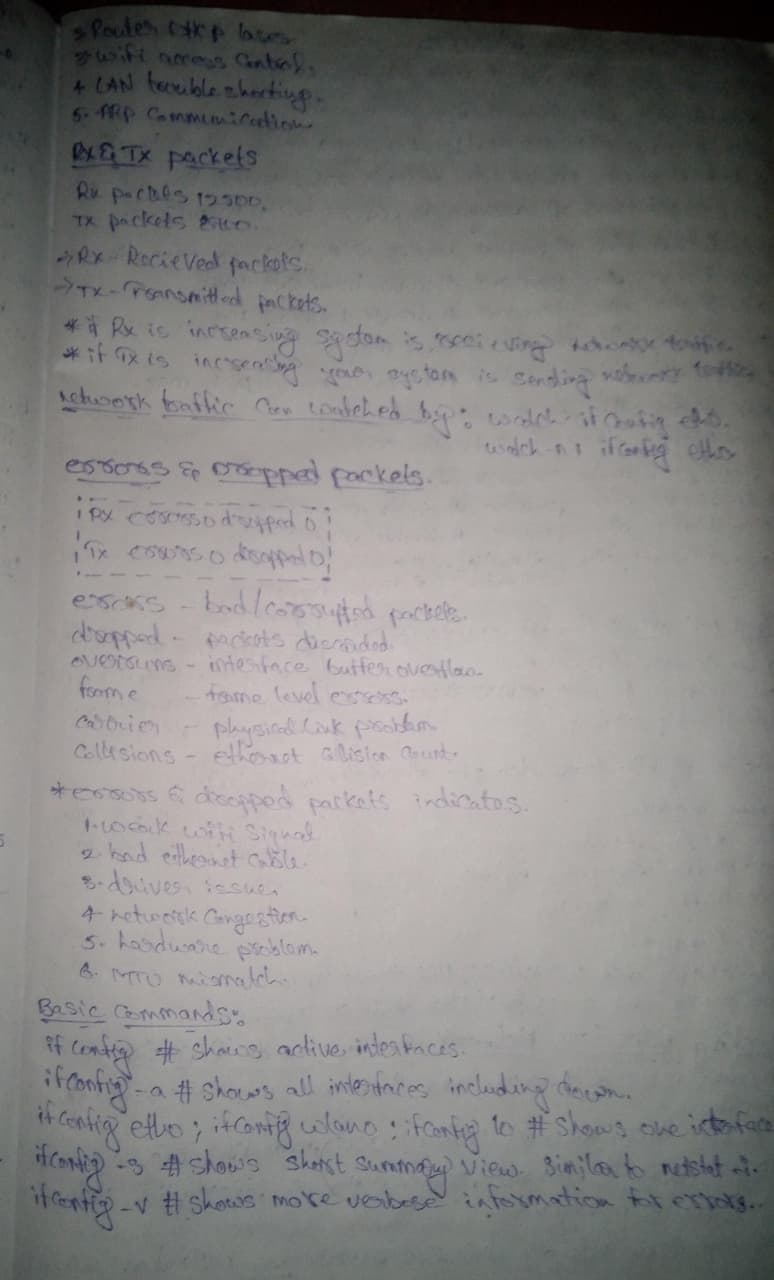 3 Router DHCP
3 wifi access Control.
4 LAN troubleshorting.
5. ARP Communication
Rx & Tx packets
Rx packets 12500.
Tx packets
→ Rx - Recieved packets.
→ TX - Transmitted packets.
* if Rx is increasing system is recieving network traffic.
* if Tx is increasing your system is sending network traffic.
network traffic can watched by: watch ifconfig eth0.
watch -n 1 ifconfig eth0
errors & Dropped packets.
Rx errors 0 dropped 0
Tx errors 0 dropped 0
errors - bad/corrupted packets.
dropped - packets discarded
overruns - interface buffer overflow.
frame - frame level errors.
carrier - physical link problem
collisions - ethernet collision count.
* errors & dropped packets indicates.
1. weak wifi Signal
2. bad ethernet cable.
3. driver issue.
4 network Congestion.
5. hardware problem.
6. MTU mismatch.
Basic Commands:
ifconfig # shows active interfaces.
ifconfig -a # shows all interfaces including down.
ifconfig eth0 ; ifconfig wlan0 ; ifconfig lo # shows one interface
ifconfig -s # shows short summary view. similar to netstat -i.
ifconfig -v # shows more verbose information for errors..